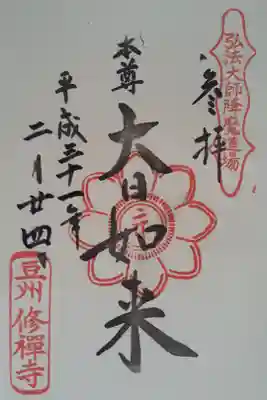 弘法大師降魔道場
参拝
本尊
大日如来
平成三十一年
二月廿四日
豆州修禅寺